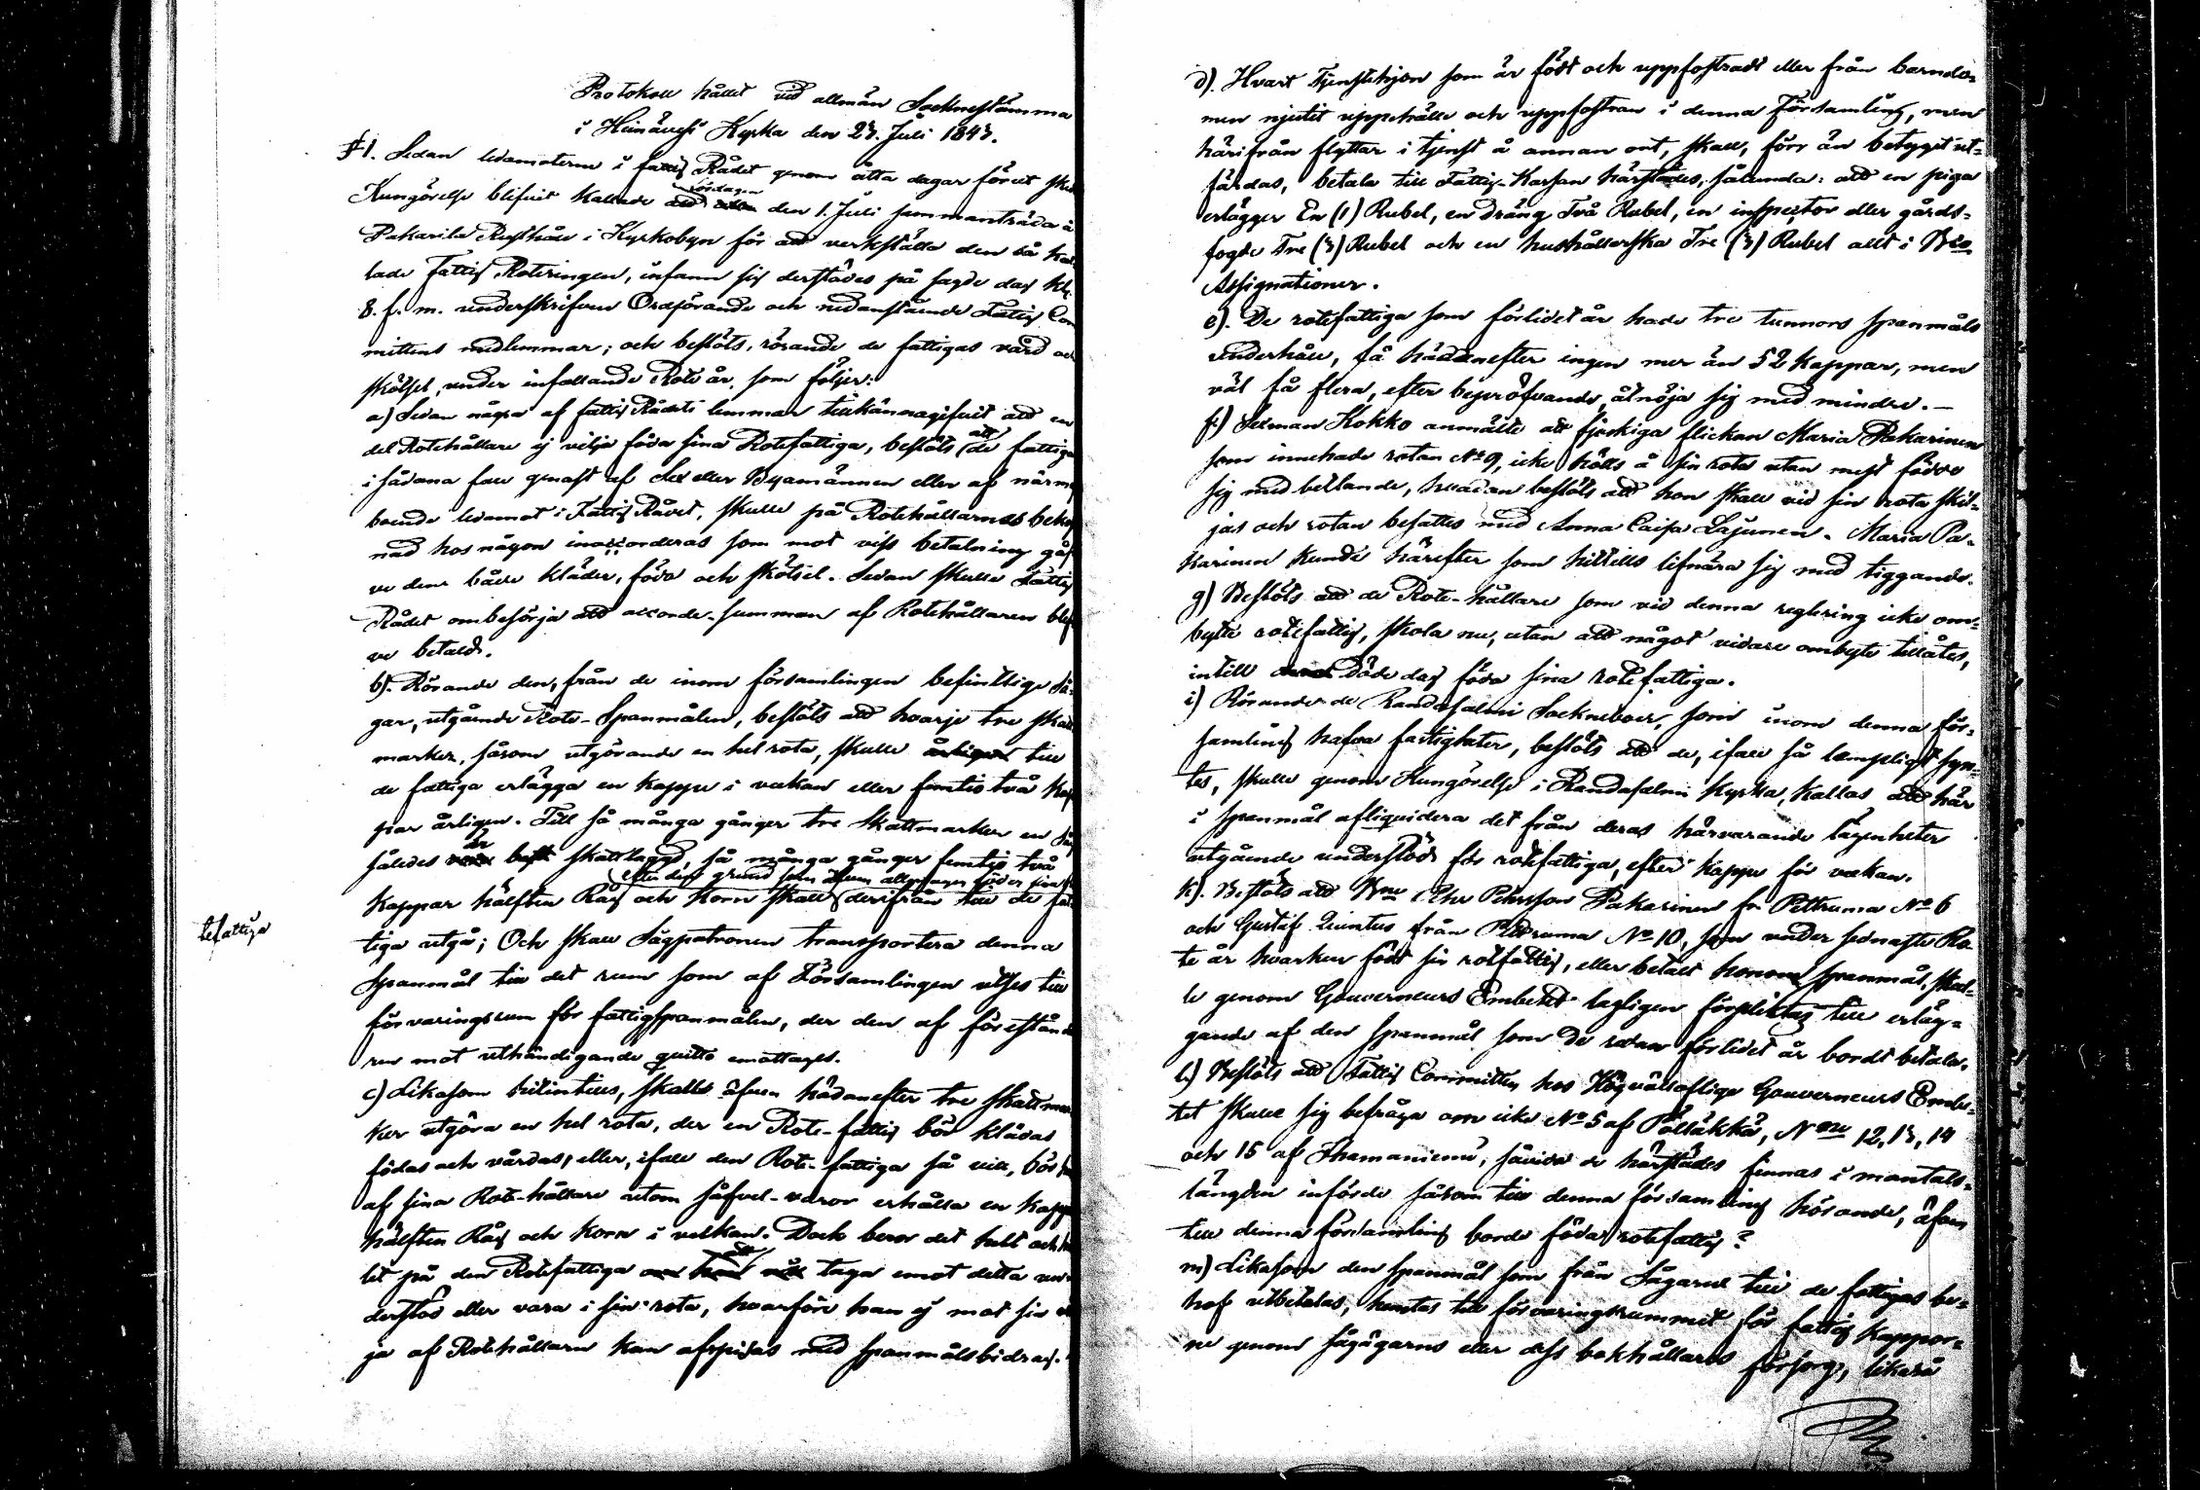 Protokoll hållet vid allmän Socknestämma
i Heinävesi Kyrka den 23. Juli 1843.
§1. Sedan ledamoterne i fattig Rådet genom åtta dagar förut sked
Kungörelse blifvit kallade att lördagen den 1. Juli sammanträda å
Pakarila Rusthåll i Kyrkobyn för att verkställa den så kal-
lade Fattig Roteringen, infann sig derstädes på sagde dag kl.
8. f. m. underskrifven Ordförande och nedanstående Fattig Com
mittens medlemmar; och beslöts, rörande de fattigas vård oc
skötsel, under infallande Rote år, som följer:
a) Sedan någre af fattig Rådets lemmar tillkännagifvit att en
del Rotehållare ej vilja föda sina Rotefattiga, beslöts att de fattiga
i sådana fall genast af Sex eller Byamännen eller af närm
boende ledamot i Fattig Rådet, skulle på Rotehållarnas bekost
nad hos någon inaccorderas som mot viss betalning gåf
ve dem både kläder, föda och skötsel. Sedan skulle Fattig
Rådet ombesörja att accords-summan af Rotehållaren blef
ve betald.
b). Rörande den, från de inom församlingen befintlige Så-
gar, utgående Rote-Spanmålen, beslöts att hvarje tre skatt
marker, såsom utgörande en hel rota, skulle årligen till
de fattiga erlägga en kappe i veckan eller femtio två kap
par årligen. Till så många gånger tre skattmarker en såg
således är skattlaggd, så många gånger femtio två
efter dess grund som allmogen föder sina
Kappar hälften Råg och Korn skall derifrån till de fat-
tefattiga
tiga utgå; Och skall Sågpatronen transportera denna
Spanmål till det rum som af Församlingen utses till
förvaringsrum för fattigspanmålen, der den af föreståndа
ren mot uthändigande qvitto emottages.
c) Likasom hitintills, skulle äfven hädanefter tre skattmar
ker utgöra en hel rota, der en Rote-fattig bör klädas
födas och vårdas, eller, ifall den Rote-fattiga så vill, bör han
af sina Rote-hållare utom såfvel-varor erhålla en kappe
hälften Råg och Korn i veckan. Dock beror det helt och hål
let på den Rotefattiga att taga emot detta un
derstöd eller vara i sin rota, hvarföre han ej mot sin vil
ja af Rotehållarn kan afspisas med spanmålsbidrag.
d). Hvart Tjenstehjon som är födt och uppfostradt eller från barndo-
men njutit uppehälle och uppfostran i denna Församling, men
härifrån flyttar i tjenst å annan ort, skall, förr än betyget ut-
färdas, betala till Fattig-Kassan härstädes, sålunda: att en piga
erlägger En (1) Rubel, en dräng Två Rubel, en inspector eller gårds-
fogde Tre (3) Rubel och en hushållerska Tre (3) Rubel allt i Bco
Assignationer.
e). De rotefattiga som förlidet år hade tre tunnors spanmåls
underhåll, få hädanefter ingen mer än 52 kappar, men
väl få flera, efter bepröfvande, åtnöja sig med mindre.
f.) Sexman Kokko anmälte att fjeskiga flickan Maria Pakarinen
som innehade rotan No 9, icke hölls å sin rota utan mest födde
sig med bettlande, hvadan beslöts att hon skall vid sin rota skil-
jas och rotan besattes med Anna Caisa Lajunen. Maria Pa-
karinen kunde härefter som hittills lifnära sig med tiggande.
g) Beslöts att de Rote-hållare som vid denna reglering icke om-
bytte rotefattig, skola nu, utan att något vidare ombyte tillåtes,
intill döde dag föda sina rotefattiga.
i) Rörande de Randasalmi Sockneboer, som inom denna för-
samling hafva fastigheter, beslöts att de, ifall så lämpligt syn-
tes, skulle genom Kungörelse i Randasalmi Kyrka, kallas att här
i spanmål afliquidera det från deras härvarande lägenheter
utgående understöd för rotefattiga, efter kappe för veckan.
k). Beslöts att Bne Pehr Pehrsson Pakarinen fr. Petruma No 6
och Gustaf Quintus från Petruma No 10, som under sednaste Ro-
te år hvarken födt sin rotfattig, eller betalt honom spanmål, skul-
le genom Gouverneurs Embetet lagligen förpliktas till erläg-
gande af den spanmål som de rotan förlidet år bordt betala.
l.) Beslöts att Fattig Committen hos Högvälloflige Gouverneurs Embe-
tet skulle sig befråga om icke No 5 af Pölläkkä, Nrne 12, 13, 14
och 15 af Ihamaniemi, såvida de härstädes finnas i mantals-
längden införde såsom till denna församling hörande, äfven
till denna församling borde föda rotefattig?
m) Likasom den spanmål som från Sågarne till de fattigas be-
hof utbetalas, hemtas till förvaringsrummet för fattig kappor-
ne genom sågägarns eller dess bokhållares försorg, likaså